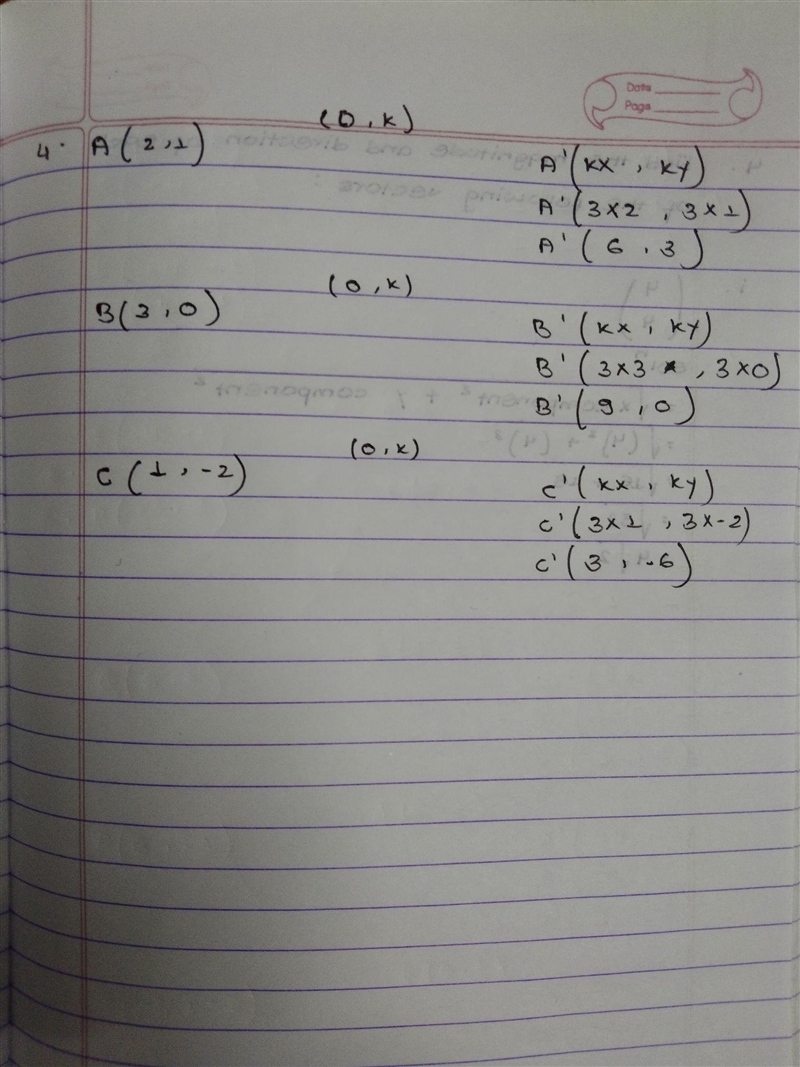 Date
Page
(0, K)
4. A(2,1)
A'(Kx, Ky)
A'(3×2, 3×1)
A'(6, 3)
(0, K)
B(3, 0)
B'(Kx, Ky)
B'(3×3, 3×0)
B'(9, 0)
(0, K)
C(1, -2)
C'(Kx, Ky)
C'(3×1, 3×-2)
C'(3, -6)